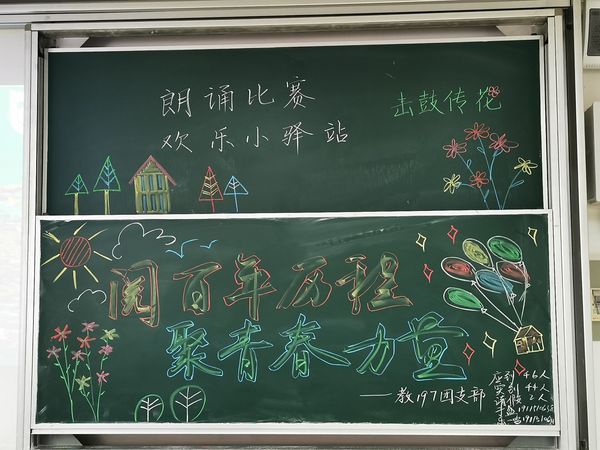 朗诵比赛
击鼓传花
欢乐小驿站
阅百年历程
聚青春力量
——教197团支部
应到 46人
实到 44人
请假 2人